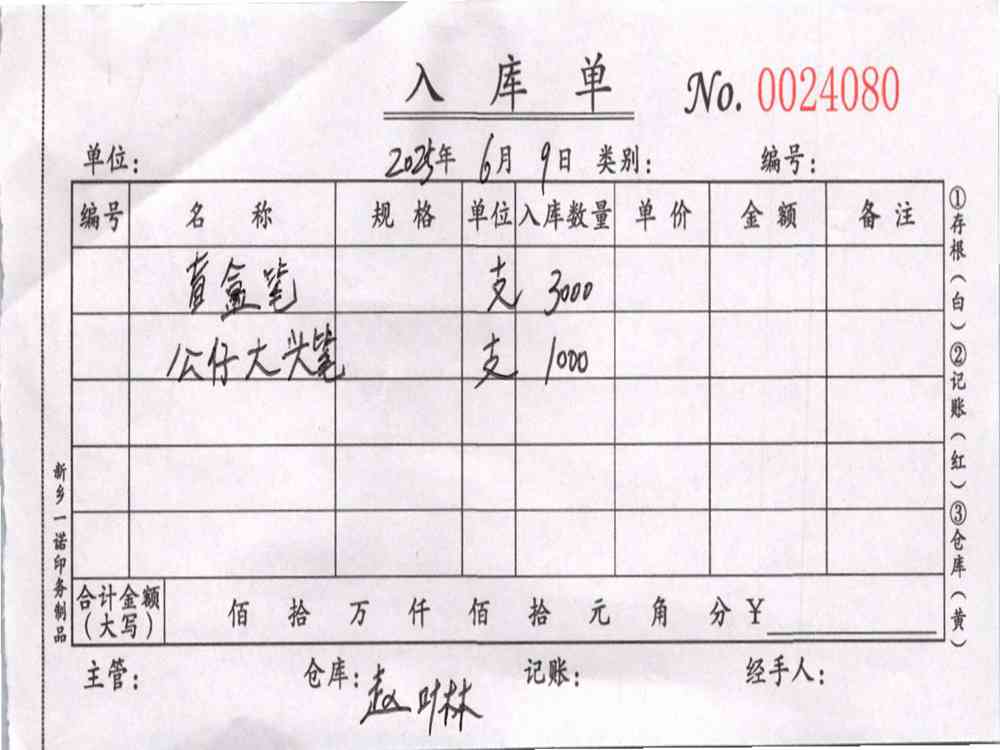 入库单 No. 0024080
单位: 2025年 6月 9日 类别: 编号:
编号 名称 规格 单位 入库数量 单价 金额 备注
黄盒笔 支 3000
公仔大头笔 支 1000
合计金额(大写) 佰 拾 万 仟 佰 拾 元 角 分 ¥
主管: 仓库: 赵叶林 记账: 经手人:
①存根(白)②记账(红)③仓库(黄)
新乡一诺印务制品